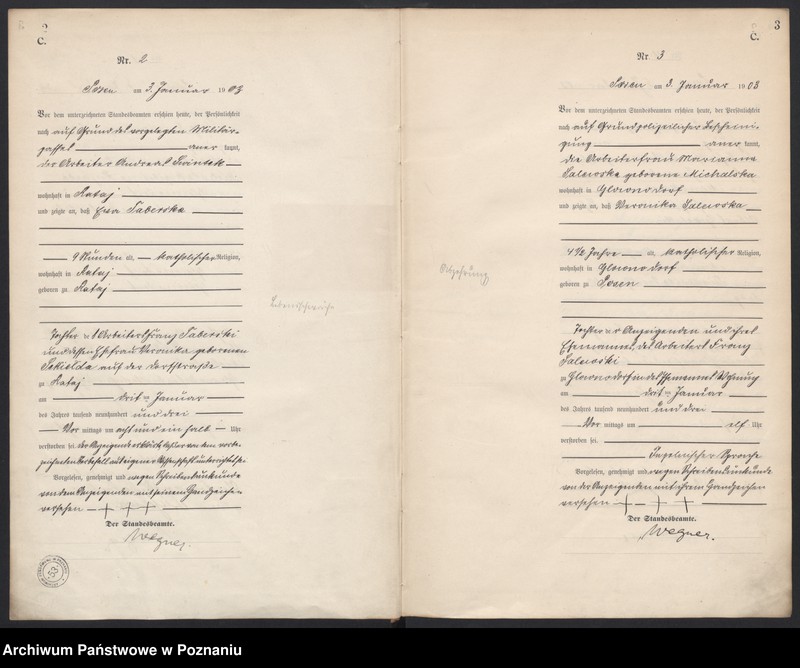 2
C.
Nr. 2
Posen am 3. Januar 1903
Vor dem unterzeichneten Standesbeamten erschien heute, der Persönlichkeit
nach auf Grund des vorgelegten Militär-
passes anerkannt,
der Arbeiter Andreas
wohnhaft in Rataj
und zeigte an, daß Ewa Taberska
9 Stunden alt, katholischer Religion,
wohnhaft in Rataj
geboren zu Rataj
Tochter des Arbeiters Franz Taberski
und dessen Ehefrau Veronika geborenen
auf der Dorfstraße
zu Rataj
am dritten Januar
des Jahres tausend neunhundert und drei
Vor mittags um acht und ein halb Uhr
verstorben sei. der Anzeigende erklärte, daß er von dem vorbe-
zeichneten Sterbefall aus eigener Wissenschaft unterrichtet sei
Vorgelesen, genehmigt und wegen Schreibensunkunde
von dem Anzeigenden mit seinem Handzeichen
versehen + + +
Der Standesbeamte.
Wegner.
Lebensschwäche
3
C.
Nr 3
Posen am 3. Januar 1903
Vor dem unterzeichneten Standesbeamten erschien heute, der Persönlichkeit
nach auf Grund polizeilicher Bescheini-
gung anerkannt,
die Arbeiterfrau Marianna
geborene Michalska
wohnhaft in Glowno Dorf
und zeigte an, daß Veronika
4 1/2 Jahre alt, katholischer Religion,
wohnhaft in Glowno Dorf
geboren zu Posen
Tochter der Anzeigenden und ihres
Ehemannes, des Arbeiters Franz
zu Glowno Dorf in des Ehemannes Wohnung
am dritten Januar
des Jahres tausend neunhundert und drei
Vor mittags um elf Uhr
verstorben sei.
Sprache
Vorgelesen, genehmigt und wegen Schreibensunkunde
von der Anzeigenden mit ihrem Handzeichen
versehen + + +
Der Standesbeamte.
Wegner.
Abzehrung
Archiwum Państwowe w Poznaniu